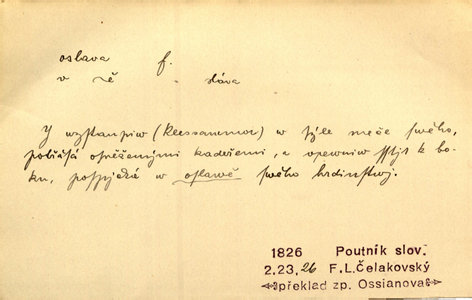 oslava f.
v ně sláva
Y wzstaupiw (Kressammor) w týle meče swého,
potřásá osněženými kadeřemi, a upewniw sstjt k bo-
ku, pospjchá w oslawě swého hrdinstwj.
1826 Poutník slov.
2.23,26 F.L.Čelakovský
překlad zp. Ossianova